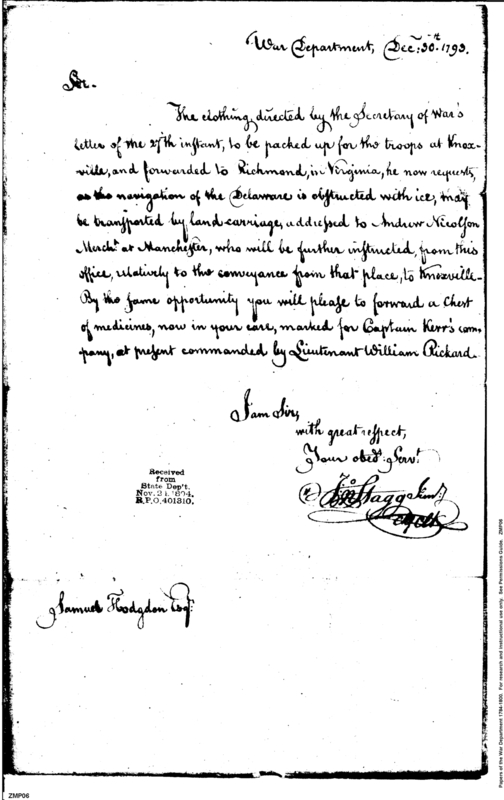 War Department, Decr. 30th. 1793.
Sir.
The clothing, directed by the Secretary of War's
letter of the 27th instant, to be packed up for the troops at Knox-
ville, and forwarded to Richmond, in Virginia, he now requests,
as the navigation of the Delaware is obstructed with ice, may
be transported by land carriage, addressed to Andrew Nicolson
Mercht. at Manchester, who will be further instructed, from this
office, relatively to the conveyance from that place, to Knoxville-
By the same opportunity you will please to forward a Chest
of medicines, now in your care, marked for Captain Kerr's com-
pany, at present commanded by Lieutenant William Rickard.
I am Sir,
with great respect,
Your obedt. Servt.
Jno Stagg Junr.
Samuel Hodgdon Esqr.
Received
from
State Dep't.
Nov. 21, 1894,
R.P.O. 401310.
ZMP06
Papers of the War Department 1784-1800. For research and instructional use only. See Permissions Guide. ZMP06